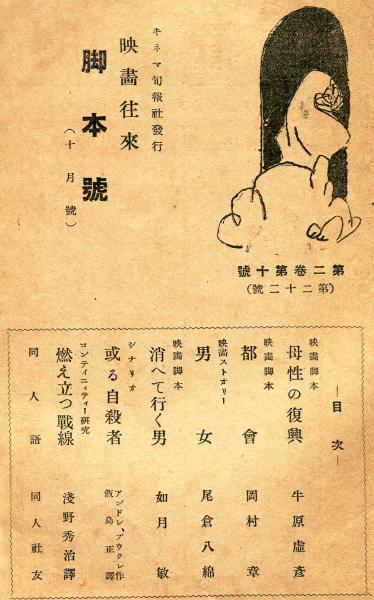 キネマ旬報社發行
映畫往來
脚本號
(十月號)
第二卷第十號
(第二十二號)
—目次—
映畫脚本
母性の復興 牛原虛彥
映畫脚本
都會 岡村章
映畫ストオリー
男女 尾倉八綿
映畫脚本
消へて行く男 如月敏
シナリオ
或る自殺者 アンドレ、ブウクレ作
飯島正譯
コンティニィティー研究
燃え立つ戰線 淺野秀治譯
同人語 同人社友